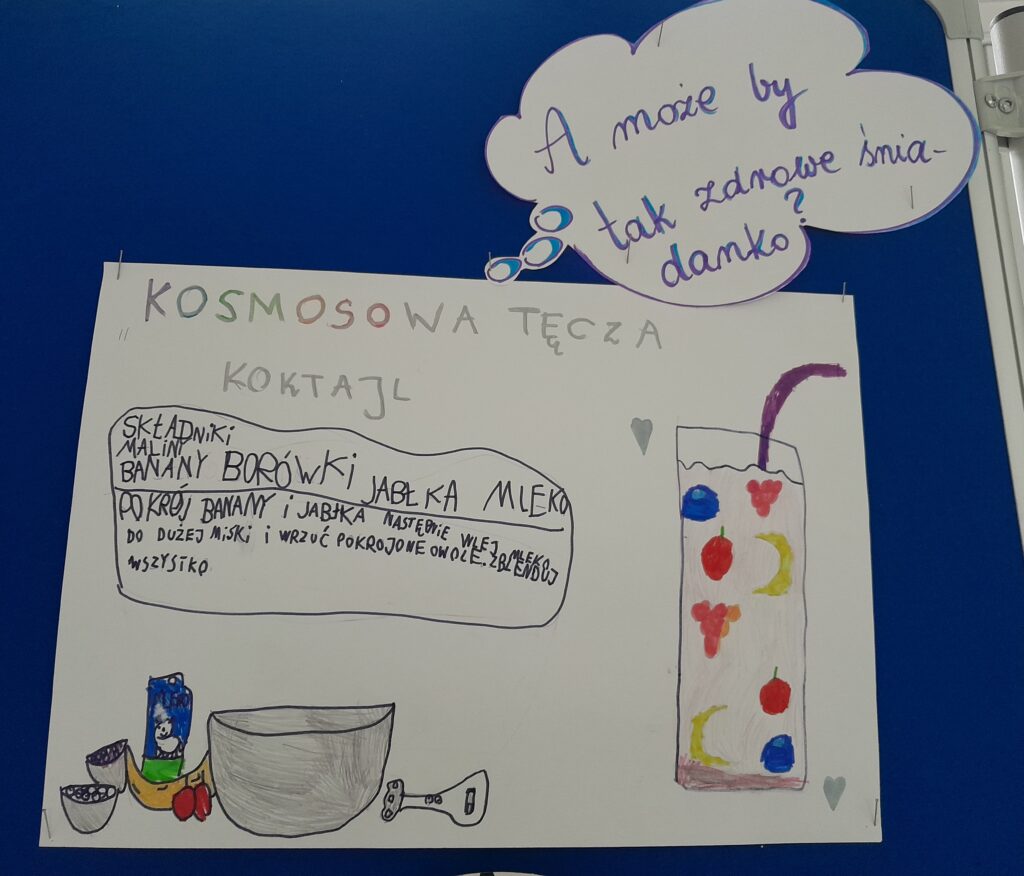 A może by
tak zdrowe śnia-
danko?
KOSMOSOWA TĘCZA
KOKTAJL
SKŁADNiKi
MALINY
BANANY BORÓWKi JABŁKA MLEKO
POKRÓJ BANANY i JABŁKA NASTĘPNIE WLEJ MLEKO
DO DUŻEJ MiSKi i WRZUĆ POKROJONE OWOCE. ZBLENDUJ
WSZYSTKO